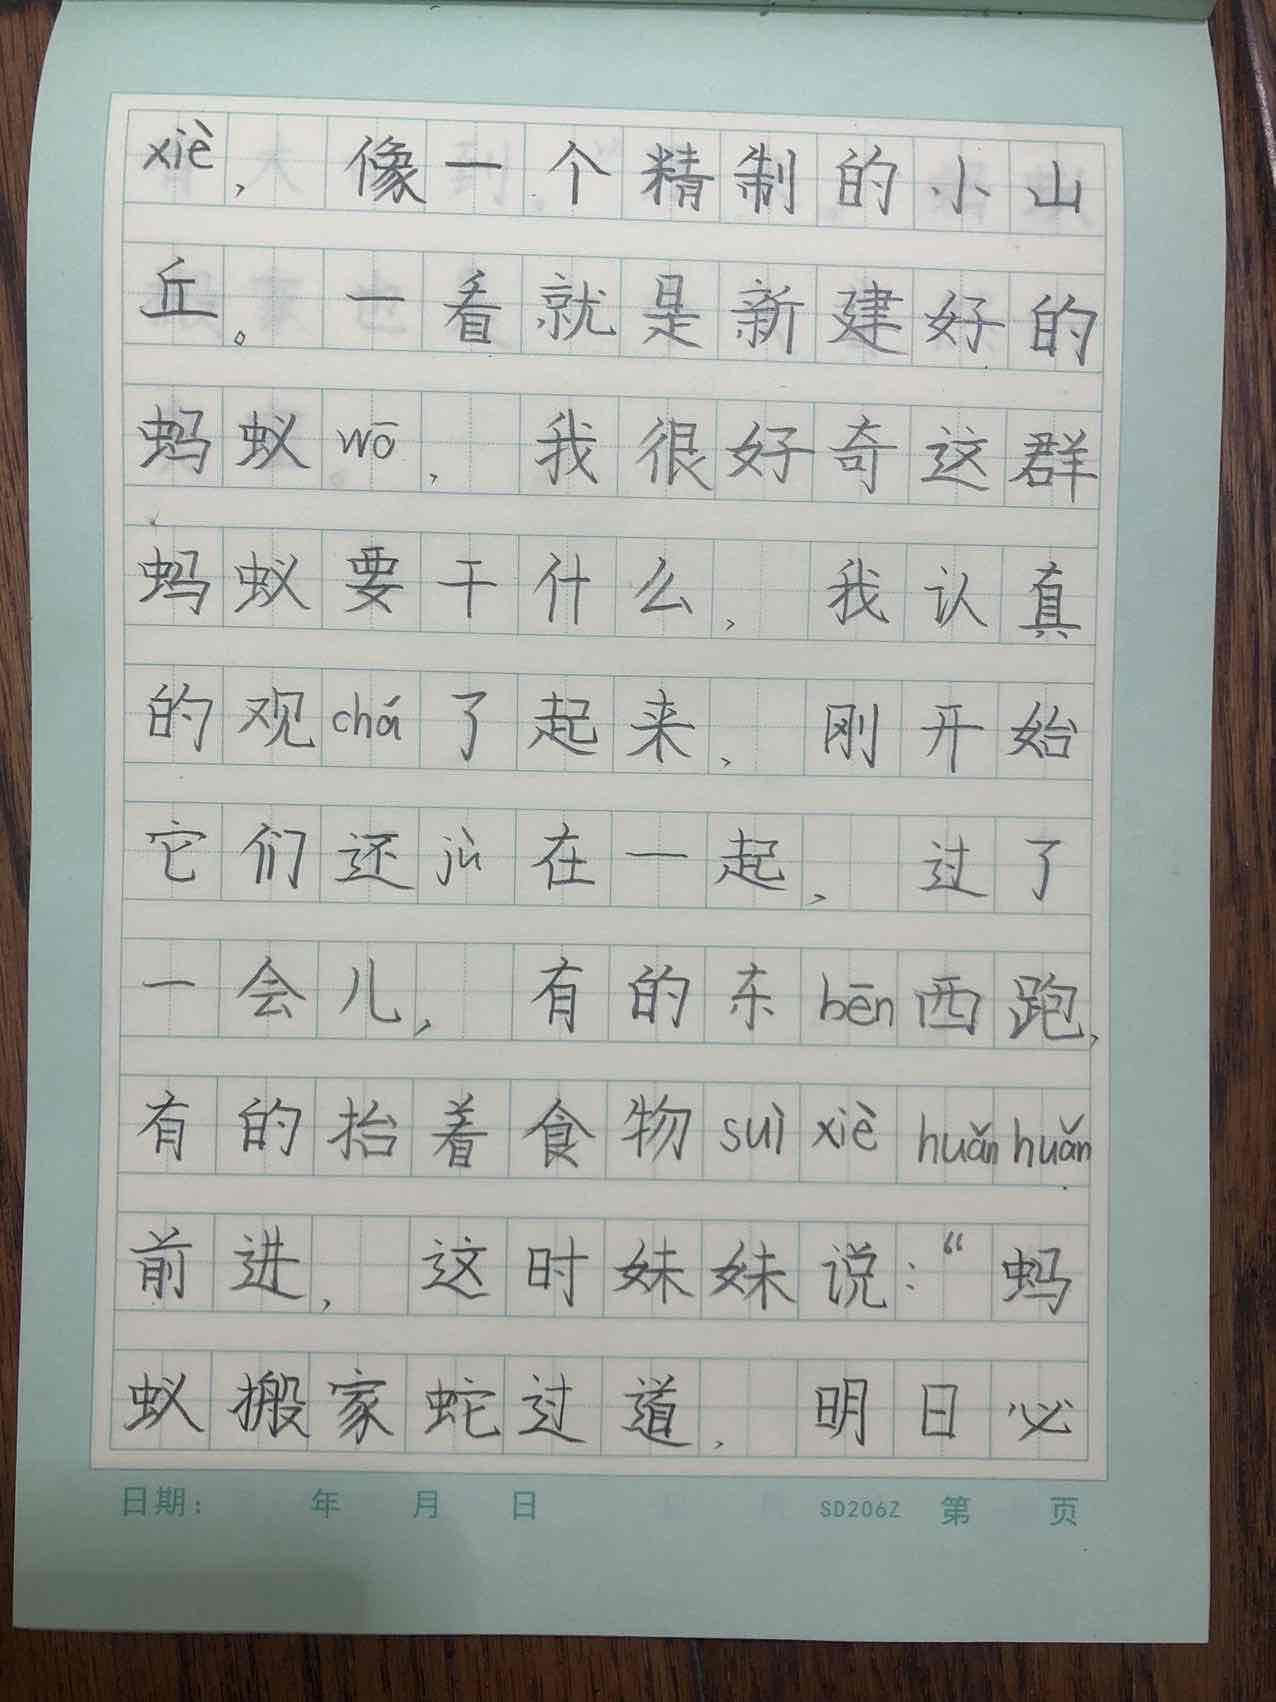 xiè，像一个精制的小山
丘。一看就是新建好的
蚂蚁wō，我很好奇这群
蚂蚁要干什么，我认真
的观chá了起来，刚开始
它们还jù在一起，过了
一会儿，有的东bēn西跑，
有的抬着食物suì xiè huǎn huǎn
前进，这时妹妹说：“蚂
蚁搬家蛇过道，明日必
日期： 年 月 日 SD206Z 第 页